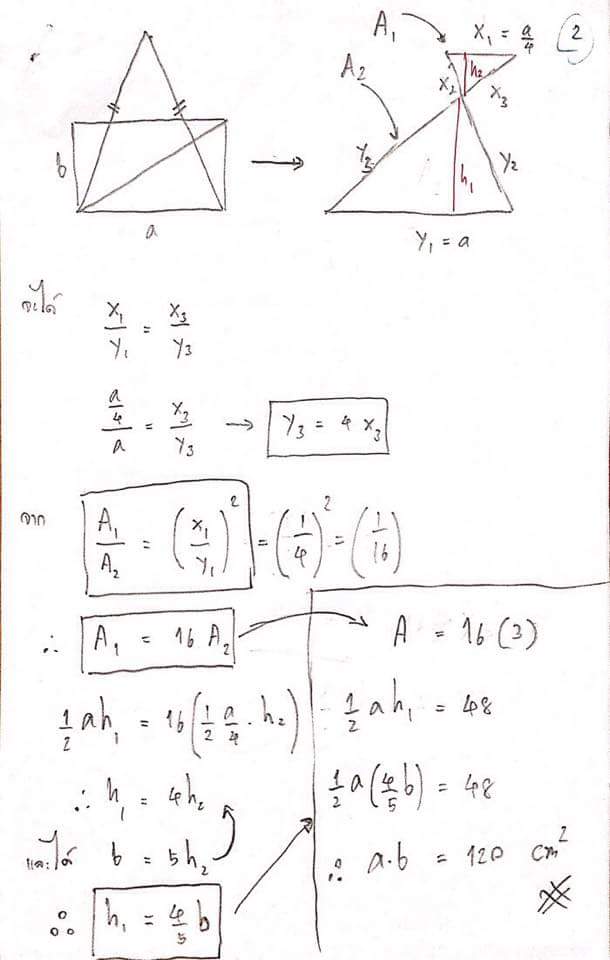 2
A₁
x₁ = a/4
A₂
h₂
x₂
x₃
b
y₃
y₂
h₁
a
y₁ = a
จะได้ x₁/y₁ = x₃/y₃
(a/4)/a = x₃/y₃ → y₃ = 4 x₃
จาก A₁/A₂ = (x₁/y₁)² = (1/4)² = (1/16)
∴ A₁ = 16 A₂
½ ah₁ = 16(½ a/4 · h₂)
∴ h₁ = 4h₂
และได้ b = 5h₂
∴ h₁ = 4/5 b
A = 16 (3)
½ a h₁ = 48
½ a(4/5 b) = 48
∴ a·b = 120 cm²